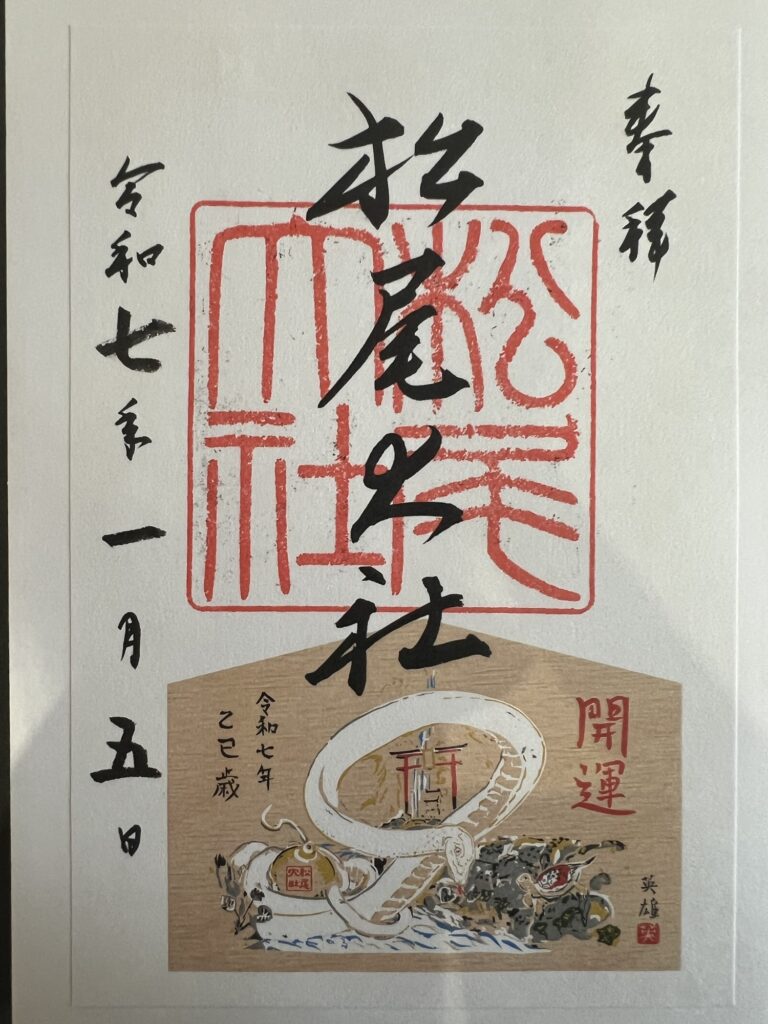 奉拝
松尾大社
松尾
大社
令和七年一月五日
開運
令和七年
乙巳歳
松尾
大社
英雄
英